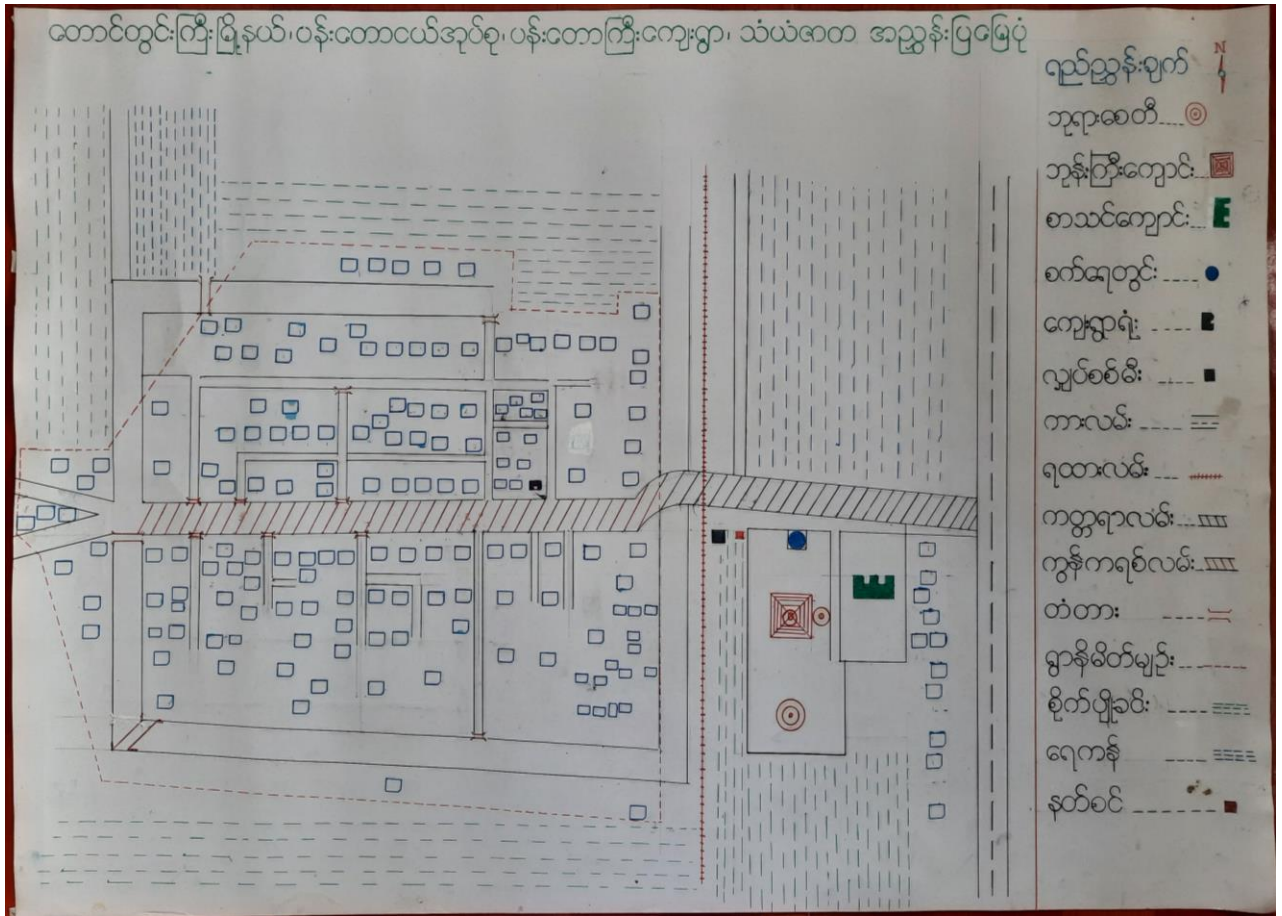 တောင်တွင်းကြီးမြို့နယ်၊ပန်းတောငယ်အုပ်စု၊ပန်းတောကြီးကျေးရွာ၊ သယံဇာတ အညွှန်းပြမြေပုံ
N
ရည်ညွှန်းချက်
ဘုရားစေတီ
ဘုန်းကြီးကျောင်း
စာသင်ကျောင်း
စက်ရေတွင်း
ကျေးရွာရုံး
လျှပ်စစ်မီး
ကားလမ်း
ရထားလမ်း
ကတ္တရာလမ်း
ကွန်ကရစ်လမ်း
တံတား
ရွာနိမိတ်မျဉ်း
စိုက်ပျိုးခင်း
ရေကန်
နတ်စင်